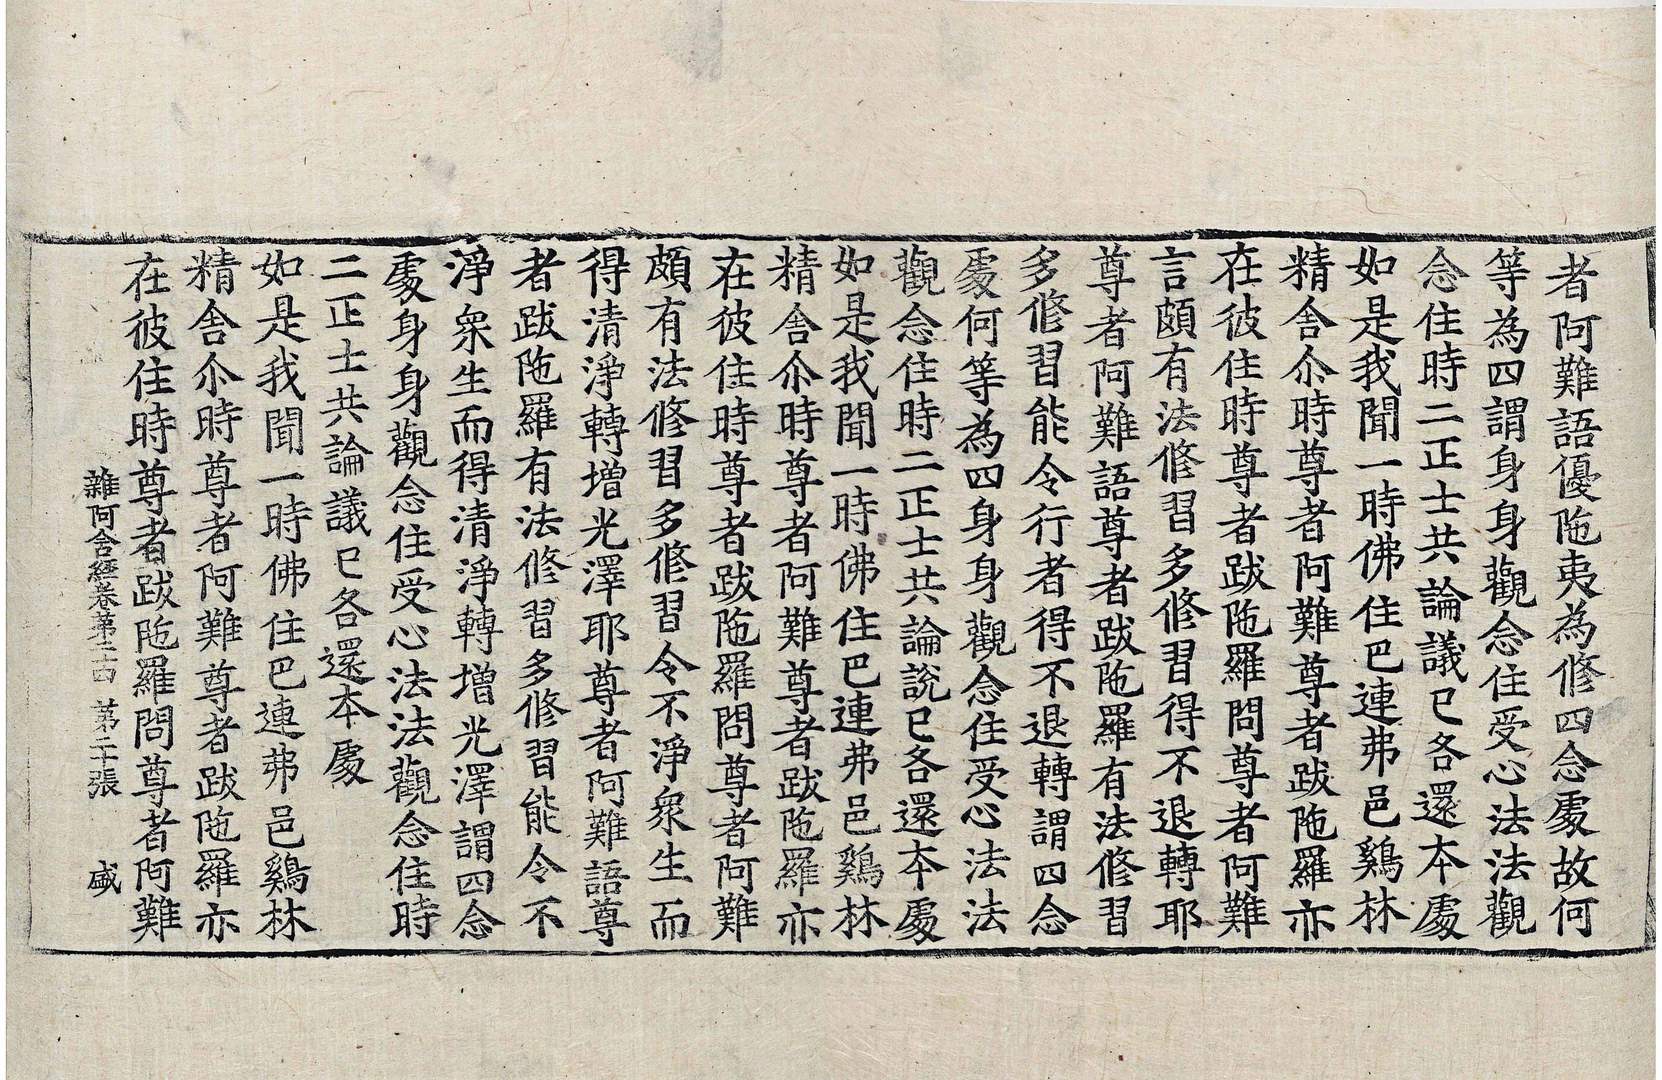 者阿難語優陁夷為修四念處故何
等為四謂身身觀念住受心法法觀
念住時二正士共論議已各還本處
如是我聞一時佛住巴連弗邑鷄林
精舍尒時尊者阿難尊者跋陁羅亦
在彼住時尊者跋陁羅問尊者阿難
言頗有法修習多修習得不退轉耶
尊者阿難語尊者跋陁羅有法修習
多修習能令行者得不退轉謂四念
處何等為四身身觀念住受心法法
觀念住時二正士共論說已各還本處
如是我聞一時佛住巴連弗邑鷄林
精舍尒時尊者阿難尊者跋陁羅亦
在彼住時尊者跋陁羅問尊者阿難
頗有法修習多修習令不淨衆生而
得清淨轉增光澤耶尊者阿難語尊
者跋陁羅有法修習多修習能令不
淨衆生而得清淨轉增光澤謂四念
處身身觀念住受心法法觀念住時
二正士共論議已各還本處
如是我聞一時佛住巴連弗邑鷄林
精舍尒時尊者阿難尊者跋陁羅亦
在彼住時尊者跋陁羅問尊者阿難
雜阿含經卷第二十四 第二十張 盛